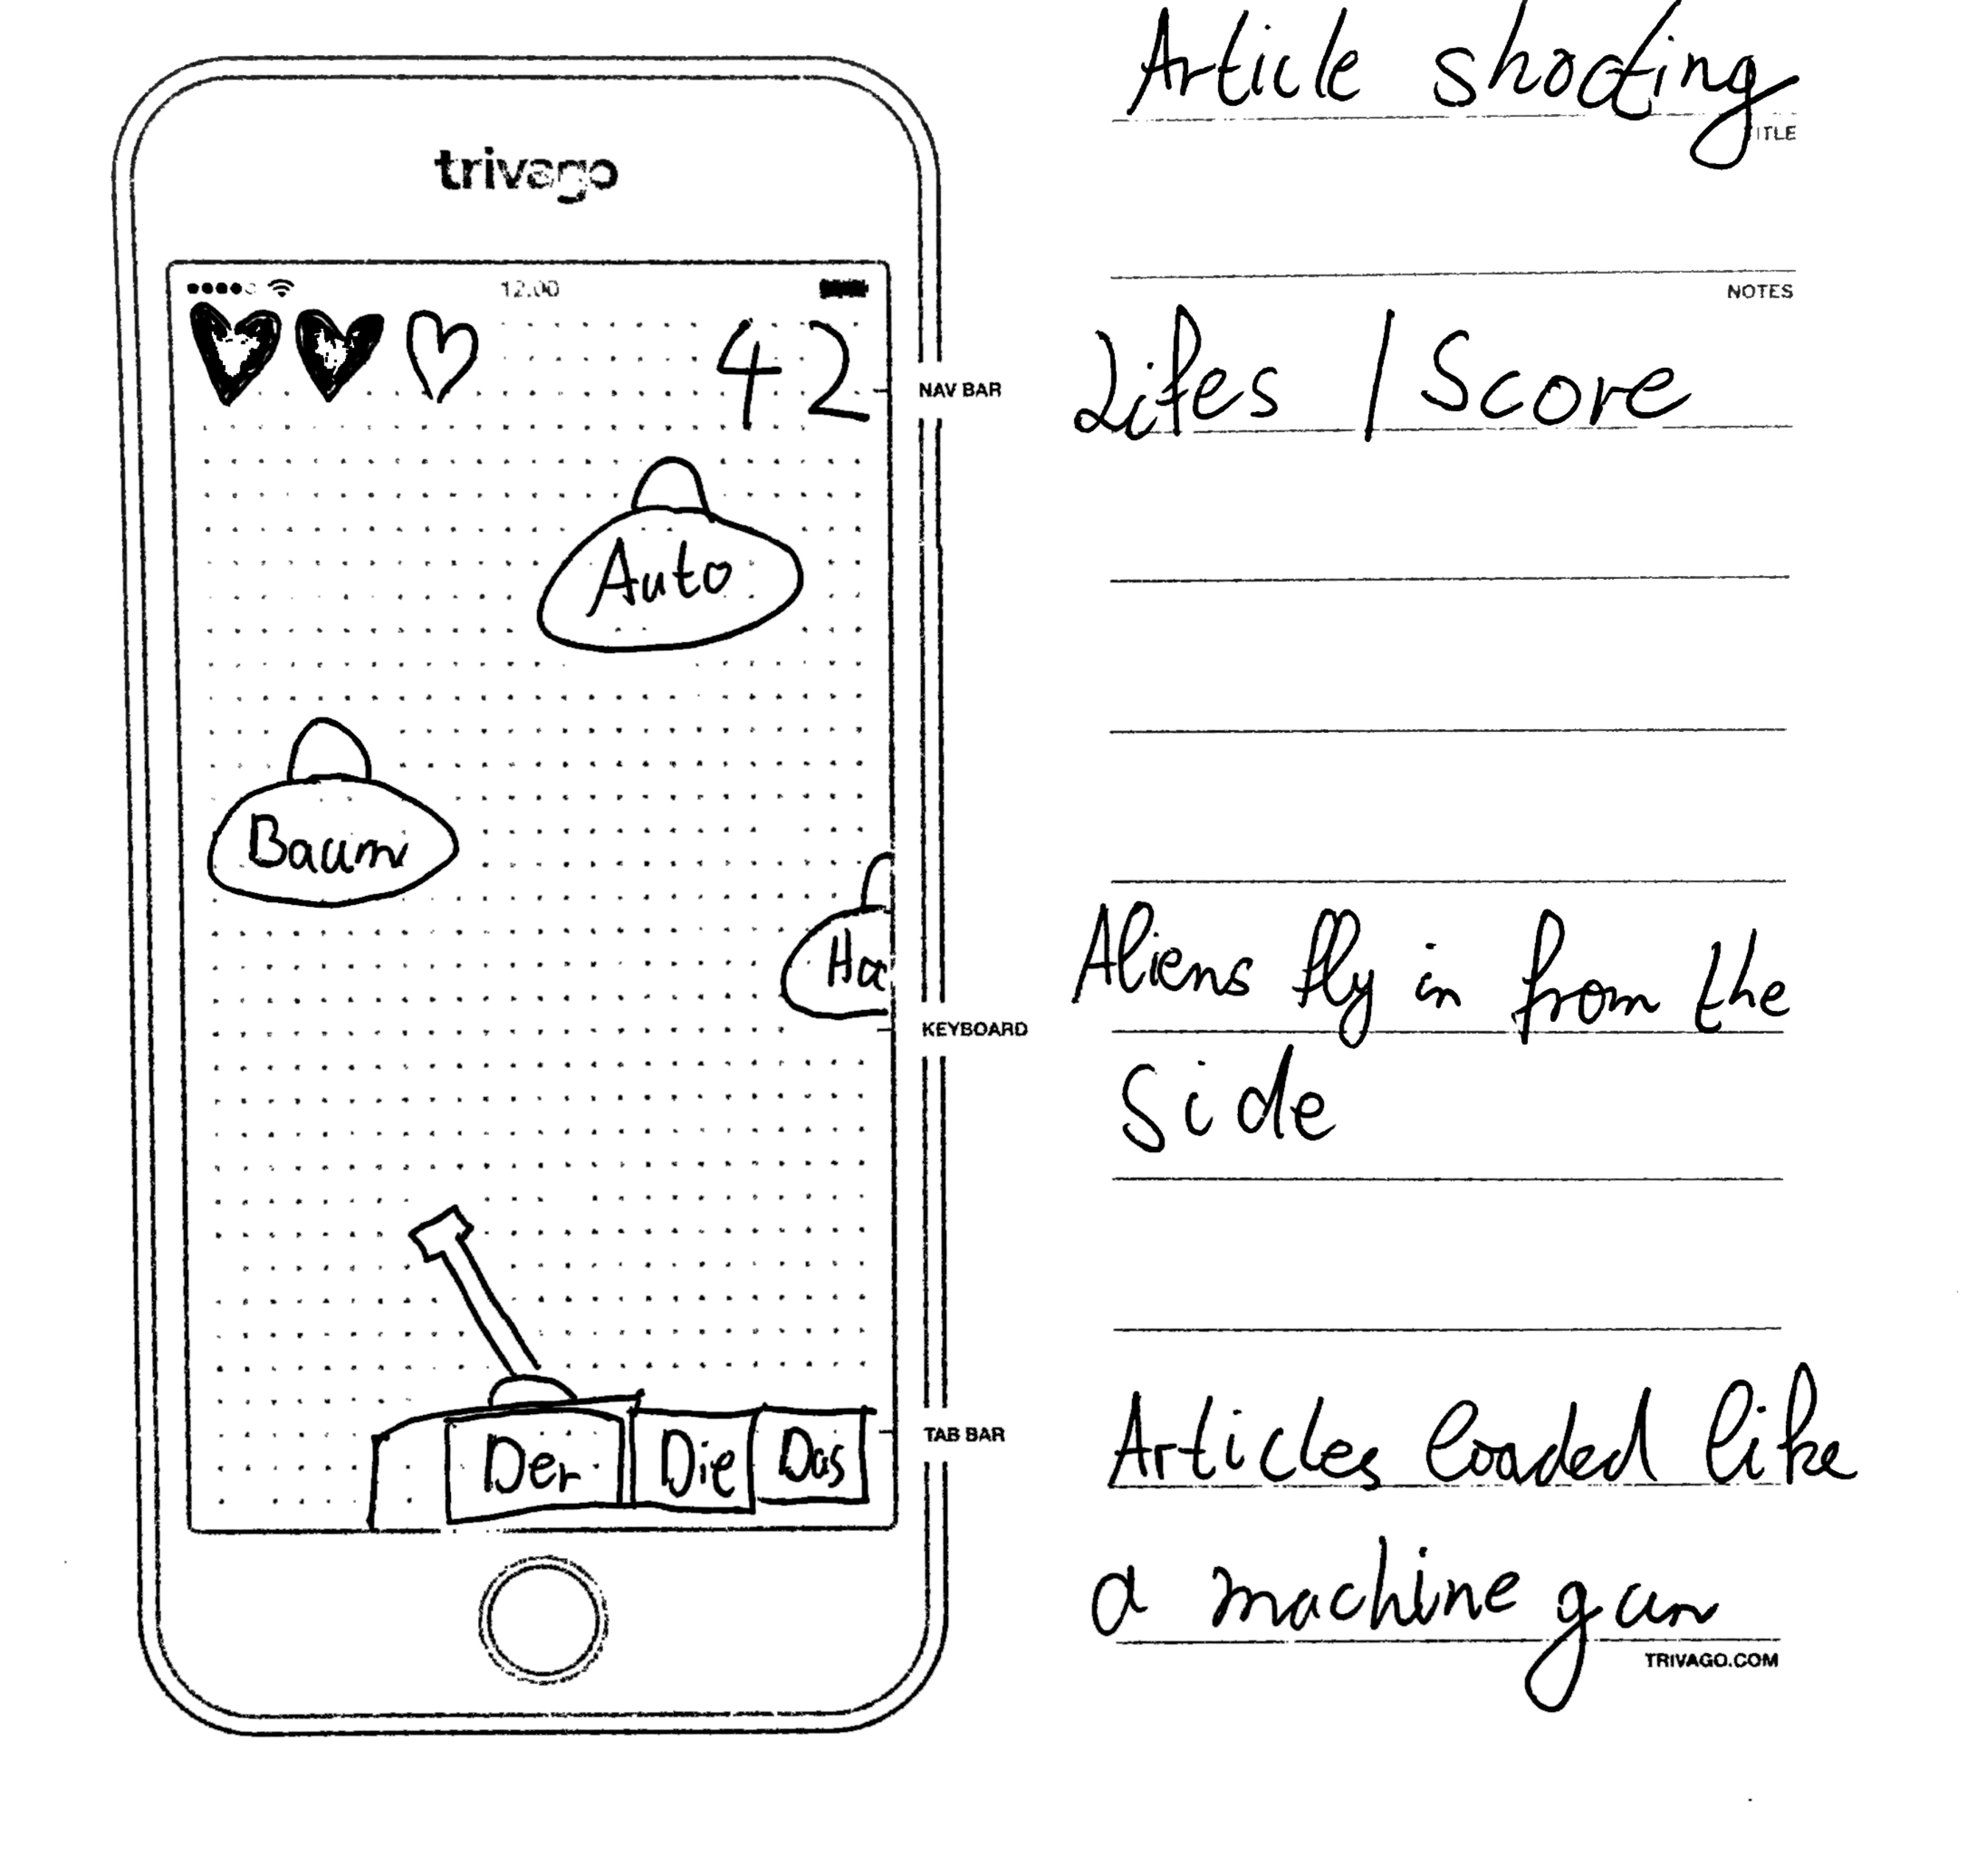 Article shooting
TITLE
trivago
12:00
NOTES
42
Lifes / Score
NAV BAR
Auto
Baum
Ha
Aliens fly in from the
KEYBOARD
side
Articles loaded like
TAB BAR
Der Die Das
a machine gun
TRIVAGO.COM